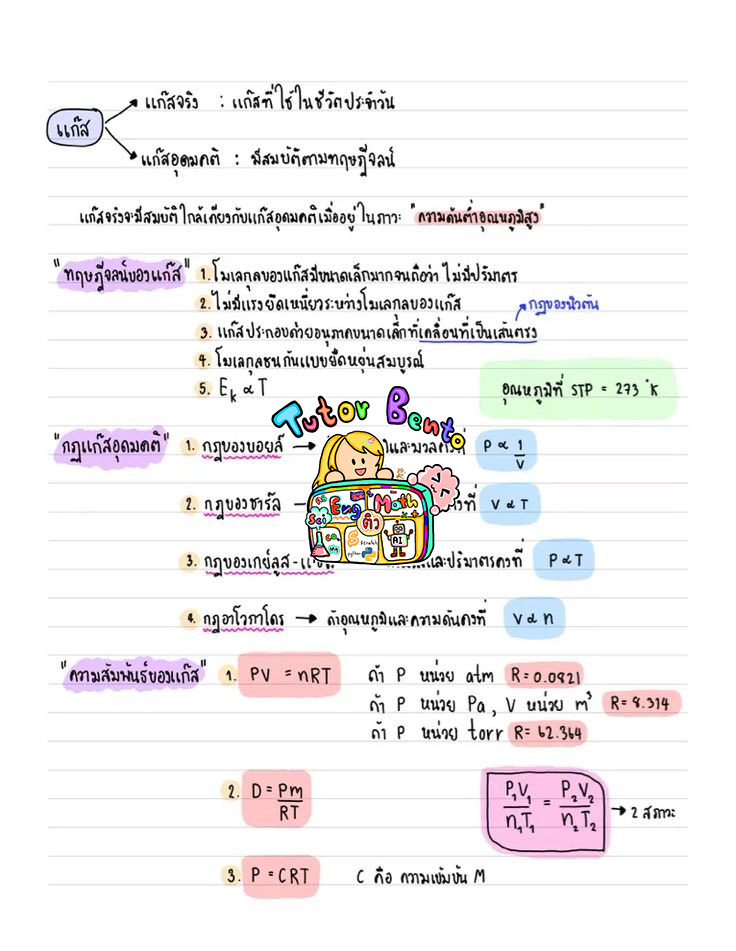 แก๊ส
แก๊สจริง : แก๊สที่ใช้ในชีวิตประจำวัน
แก๊สอุดมคติ : มีสมบัติตามทฤษฎีจลน์
แก๊สจริงจะมีสมบัติใกล้เคียงกับแก๊สอุดมคติเมื่ออยู่ในภาวะ "ความดันต่ำอุณหภูมิสูง"
"ทฤษฎีจลน์ของแก๊ส" 1. โมเลกุลของแก๊สมีขนาดเล็กมากจนถือว่าไม่มีปริมาตร
2. ไม่มีแรงยึดเหนี่ยวระหว่างโมเลกุลของแก๊ส
กฎของนิวตัน
3. แก๊สประกอบด้วยอนุภาคขนาดเล็กที่เคลื่อนที่เป็นเส้นตรง
4. โมเลกุลชนกันแบบยืดหยุ่นสมบูรณ์
5. Eₖ ∝ T
อุณหภูมิที่ STP = 273 °K
Tutor Bento
"กฎแก๊สอุดมคติ" 1. กฎของบอยล์ → และมวลคงที่ P ∝ 1/V
2. กฎของชาร์ล V ∝ T
3. กฎของเกย์ลูส - และปริมาตรคงที่ P ∝ T
4. กฎอาโวกาโดร → ถ้าอุณหภูมิและความดันคงที่ V ∝ n
Eng Math
Sci ติว
Scratch AI
Python
"ความสัมพันธ์ของแก๊ส" 1. PV = nRT ถ้า P หน่วย atm R = 0.0821
ถ้า P หน่วย Pa, V หน่วย m³ R = 8.314
ถ้า P หน่วย torr R = 62.364
2. D = Pm/RT
P₁V₁/n₁T₁ = P₂V₂/n₂T₂ → 2 สภาวะ
3. P = CRT C คือ ความเข้มข้น M